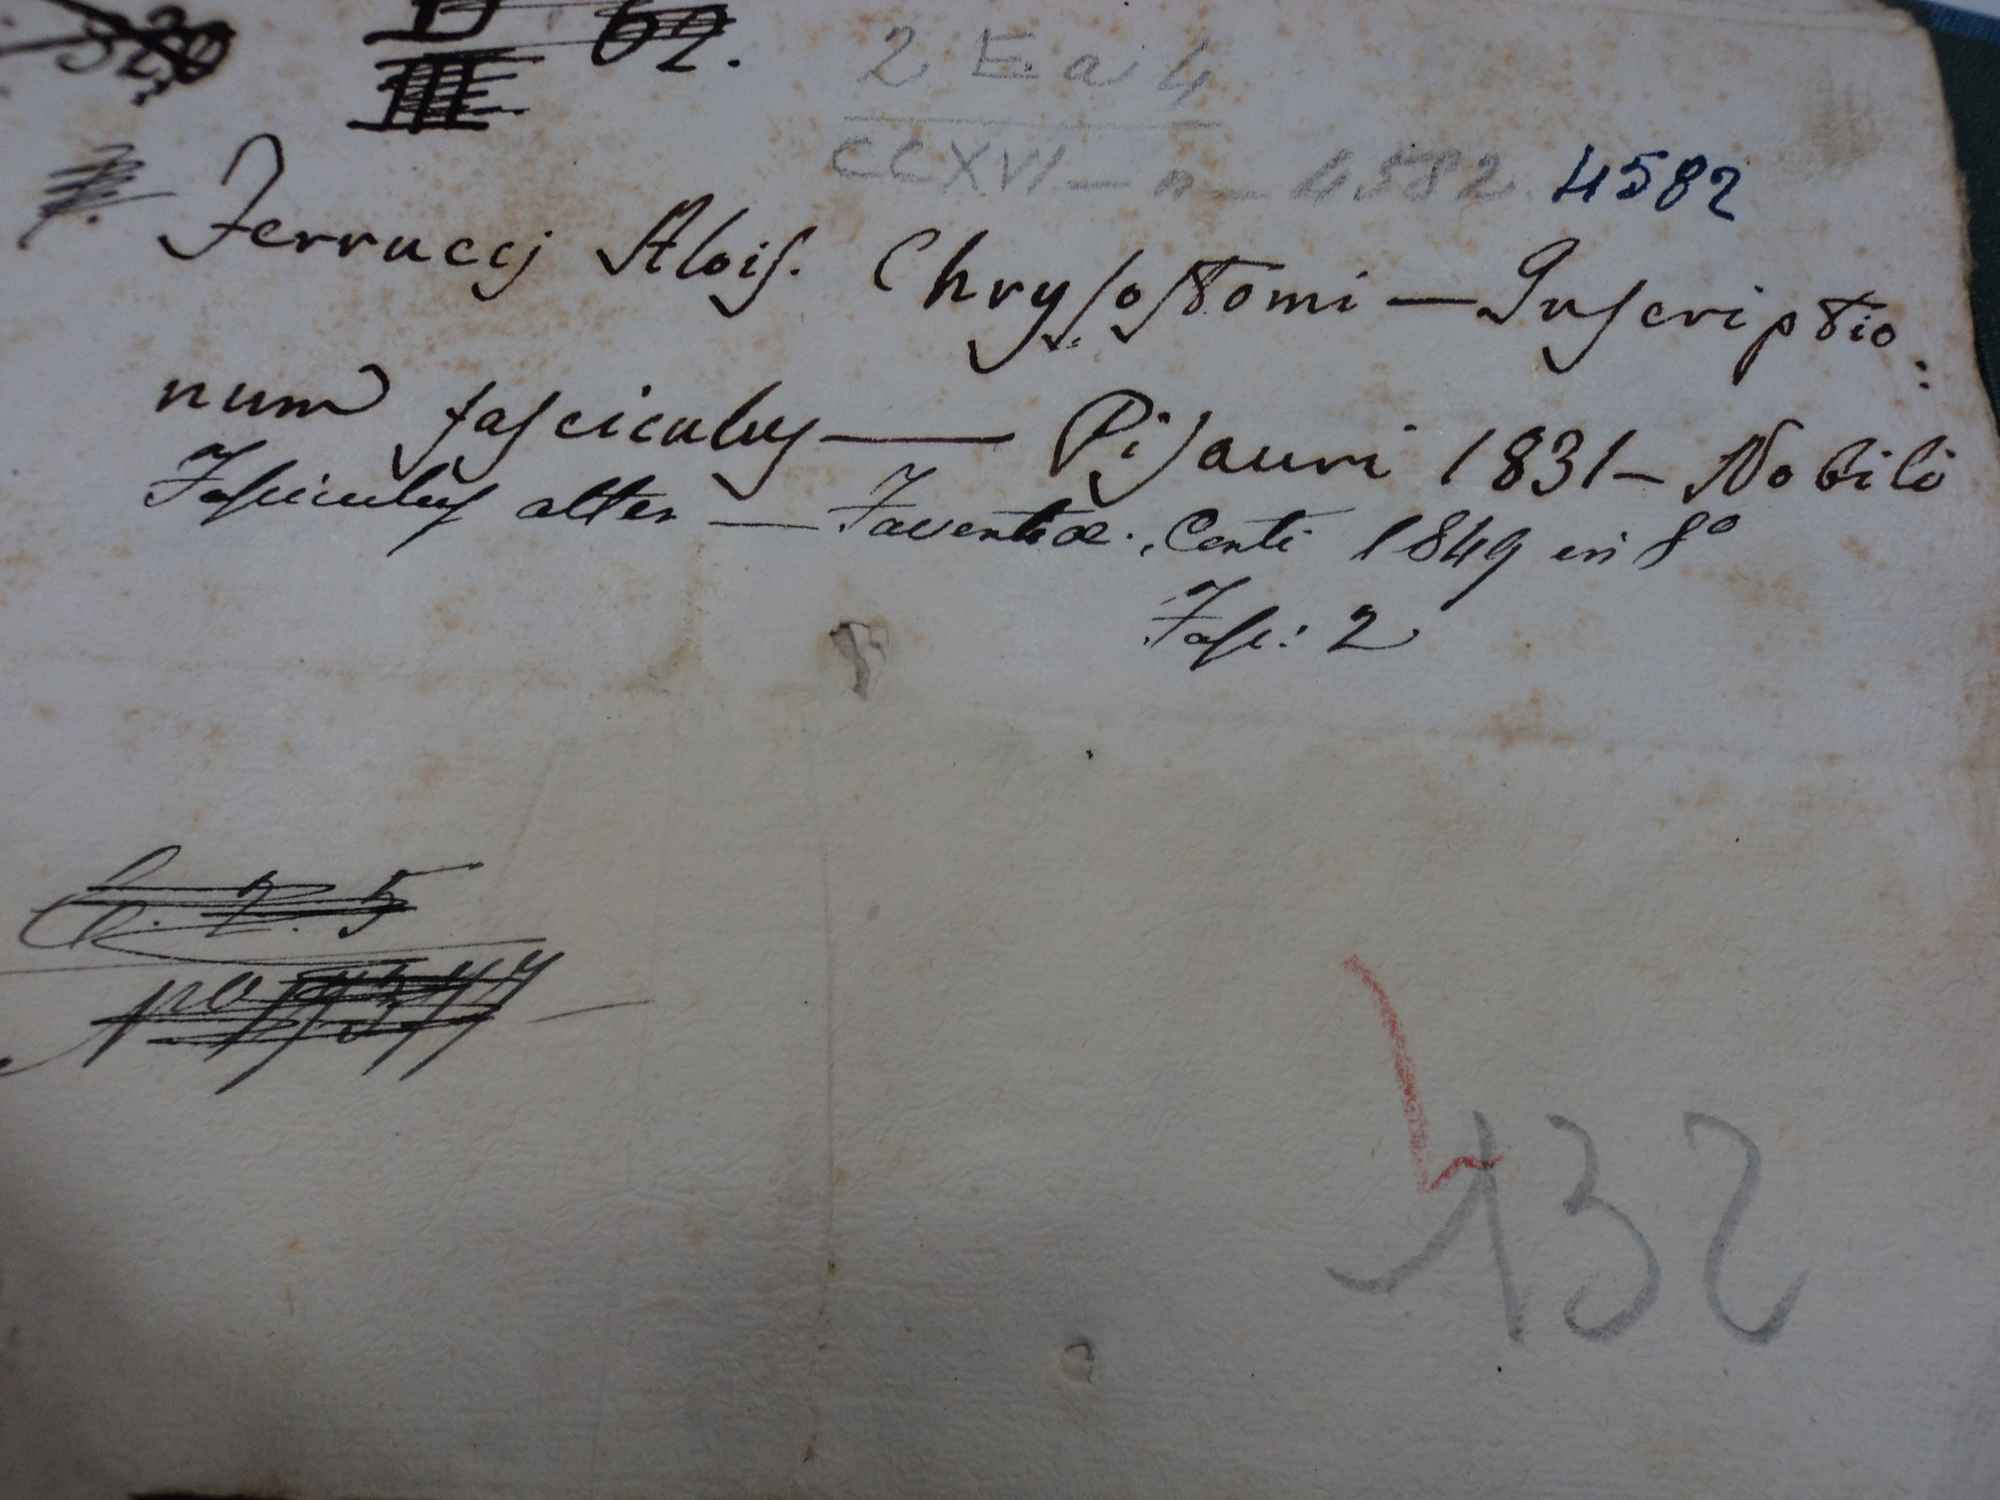 62.
2 E a 4
CCXVI - n - 4582 4582
Ferruccj Alois. Chrysostomi — Inscriptio:
num fasciculus — Pisauri 1831 - Nobili
Fasciculus alter — Faventiæ., Conti 1849 in 8º
Fasc: 2
132